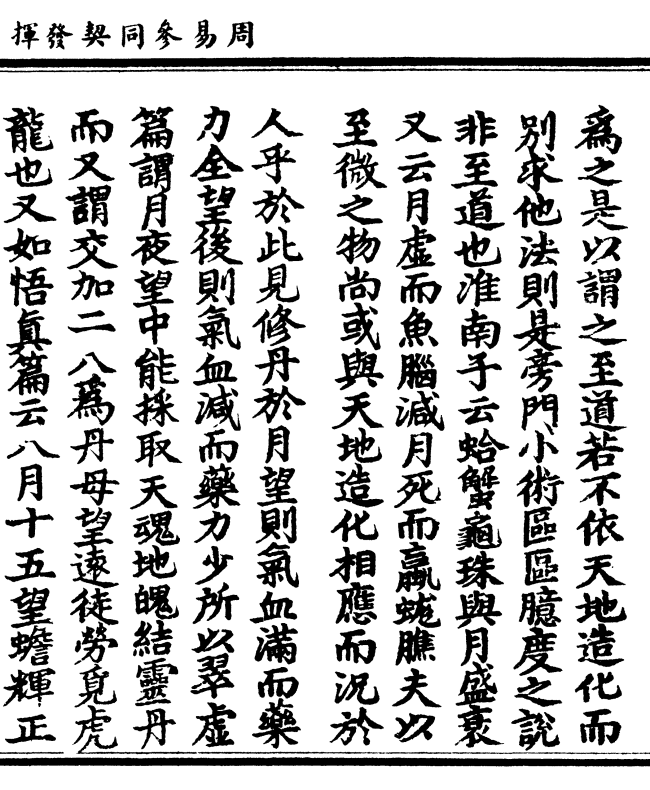 周易參同契發揮
為之是以謂之至道若不依天地造化而
別求他法則是旁門小術區區臆度之說
非至道也淮南子云蛤蟹龜珠與月盛衰
又云月虛而魚腦減月死而蠃蛖膲夫以
至微之物尚或與天地造化相應而況於
人乎於此見修丹於月望則氣血滿而藥
力全望後則氣血減而藥力少所以翠虛
篇謂月夜望中能採取天魂地魄結靈丹
而又謂交加二八為丹母望遠徒勞覓虎
龍也又如悟真篇云八月十五望蟾輝正